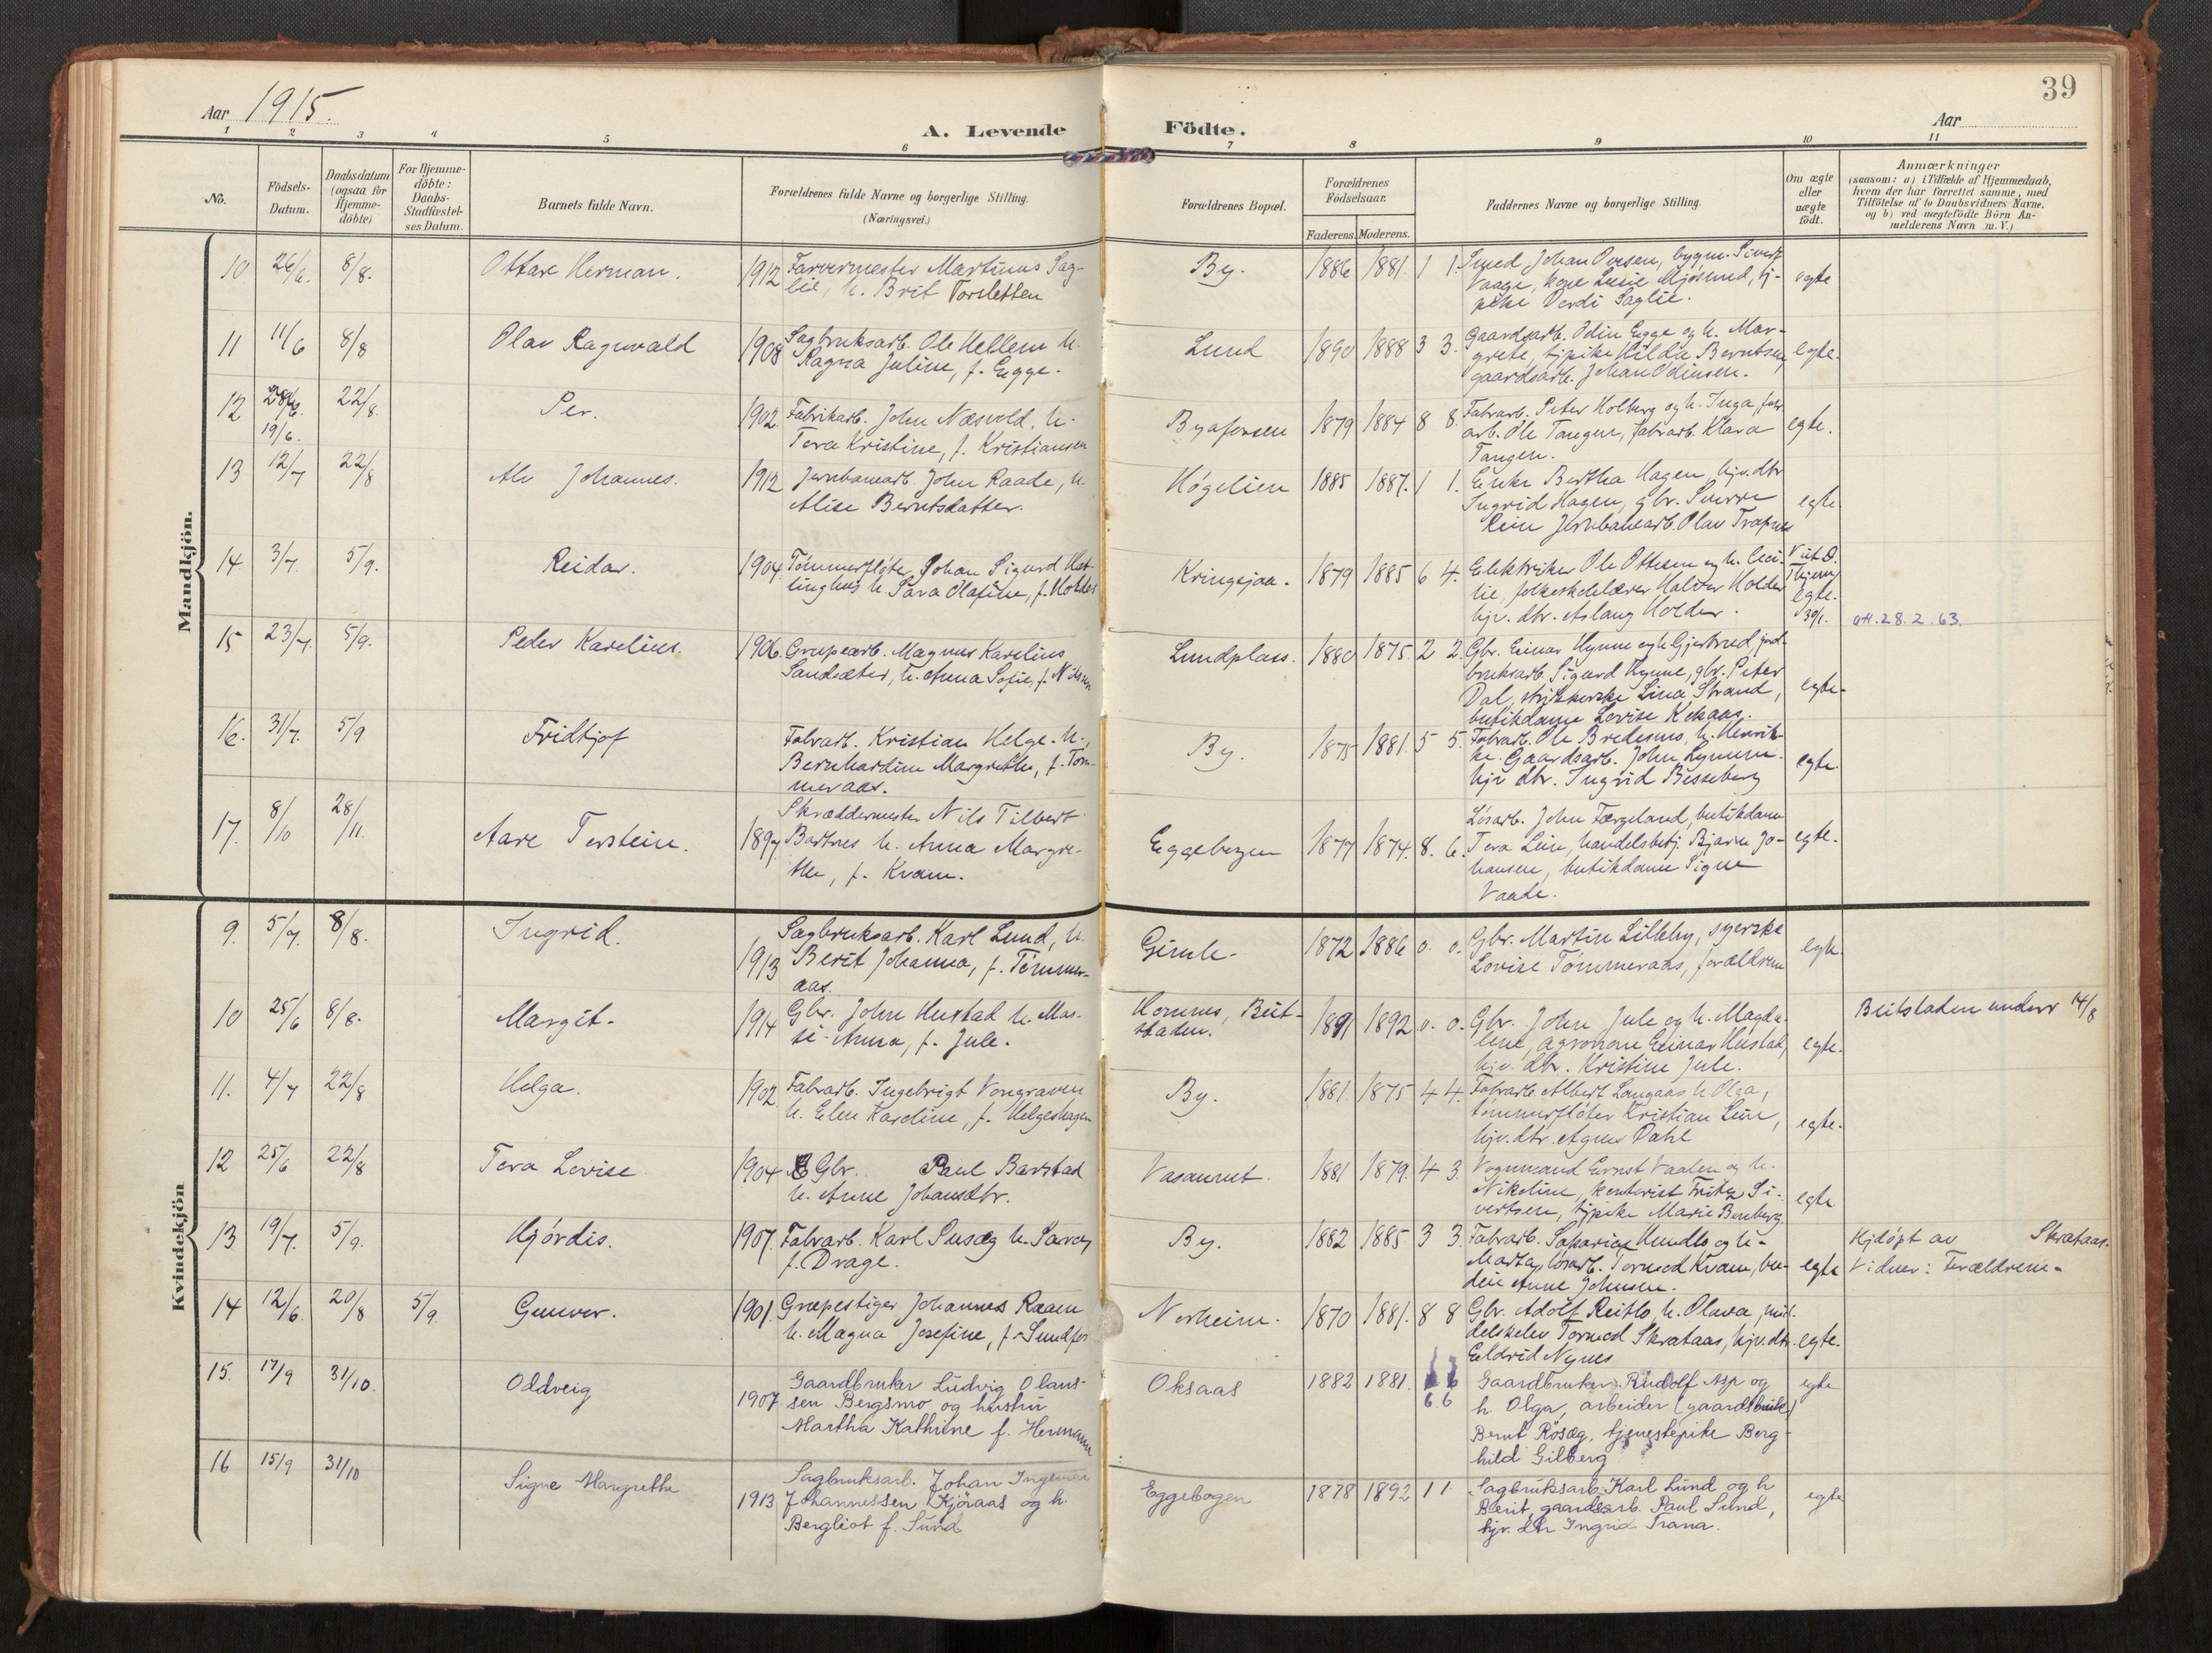 39
Aar 1915.
A. Levende Födte.
Aar
1 2 3 4 5 6 7 8 9 10 11
No.
Födsels-Datum.
Daabsdatum (ogsaa for Hjemme-döbte)
For Hjemme-döbte: Daabs-Stadfæstel-ses Datum.
Barnets fulde Navn.
Forældrenes fulde Navne og borgerlige Stilling.
(Næringsvei.)
Forældrenes Bopæl.
Forældrenes Födselsaar.
Faderens. Moderens.
Faddernes Navne og borgerlige Stilling.
Om ægte eller uægte födt.
Anmærkninger
(saasom: a) i Tilfælde af Hjemmedaab,
hvem der har forrettet samme, med
Tilföielse af to Daabsvidners Navne.
og b) ved uægtefödte Börn An-
melderens Navn m. V.)
Mandkjön.
10 26/6. 8/8. Ottare Herman. 1912 Farvermester Martinus Sag-
lie, h. Brit Torsletten
By. 1886 1881. 1 1. Smed Johan Ovesen, bygm. Sivert
Vaage, kone Lusie Mjøsund, tj-
pike Verdi Saglie.
egte
11 11/6 8/8 Olav Ragnvald 1908 Sagbruksarb. Ole Hellem h.
Ragna Juline, f. Egge.
Lund 1890 1888 3 3. Gaardsarb. Odin Egge og h. Mar-
grete, tjpike Hilda Berntsen,
gaardsarb. Johan Odinsen.
egte.
12 28/6. 19/6. 22/8. Per. 1902 Fabrikarb. John Næsvold, h.
Tora Kristine, f. Kristiansen
Byafossen 1879 1884 8 8. Fabrarb. Peter Holberg og h. Inga, fabr.
arb. Ole Tangen, fabrarb. Klara
Tangen.
egte.
13 12/7 22/8 Alv Johannes. 1912 Jernbanearb. John Raade, h.
Alise Berntsdatter.
Høgelien 1885 1887. 1 1. Enke Bertha Hagen, hjv. dtr
Ingrid Hagen, gbr. Sverre
Rein Jernbanearb. Olav Træpnes
egte
14 3/7. 5/9. Reidar. 1904. Tømmerfløter Johan Sigurd Het-
linghus h. Sara Olafine, f. Holder
Kringsjaa. 1879 1885 6 4. Elektriker Ole Ottesen og h. Ceci-
lie, folkeskolelærer Halvor Holder
hjv. dtr. Aslaug Holder.
egte.
att. 28. 2. 63.
15 23/7. 5/9. Peder Karelius. 1906. Grupearb. Magnus Karelius
Sandsæter, h. Anna Sofie, f. Nilssen
Lundplass. 1880 1875. 2 2. Gbr. Einar Hynne og h. Gjertrud, jord-
bruksarb. Sigurd Hynne, gbr. Peter
Dal, strikkerske Lina Strand,
butikdame Lovise Kekaas.
egte.
16. 31/7. 5/9 Fridtjof Fabrarb. Kristian Helge. h.,
Bernhardine Margrethe, f. Tøm-
meraas.
By. 1875 1881. 5 5. Fabrarb. Ole Bredesmo, h. Henrik-
ke. Gaardsarb. John Lynum.
hjv dtr. Ingrid Bisseberg
egte.
17. 8/10 28/11. Aare Torstein. 1897. Skræddermester Nils Tilbert
Bartnes h. Anna Margre-
the, f. Kvam.
Eggebogen 1877 1874. 8. 6. Løsarb. John Færgeland, butikdame
Tora Lein, handelsbetj. Bjarne Jo-
hansen, butikdame Signe
Vaade.
egte.
Kvindekjön
9. 5/7. 8/8. Ingrid. 1913 Sagbruksarb. Karl Lund, h.
Berit Johanna, f. Tømmer-
aas.
Gimle. 1872 1886 0. 0. Gbr. Martin Lilleby, syerske
Lovise Tømmeraas, forældrene
egte.
10 25/6 8/8. Margit. 1914 Gbr. John Hustad h. Mar-
si-Anna, f. Jule.
Homnes, Beit-
staden. 1891 1892 0. 0. Gbr. John Jule og h. Magda-
lene, agronom Einar Hustad,
hjv. dtr. Kristine Jule.
egte.
Beitstaden underr 14/8
11. 4/7 22/8 Helga. 1902. Fabrarb. Ingebrigt Vongraven
h. Elen Karoline, f. Helgeshagen
By. 1881. 1875 4 4. Fabrarb. Albert Langaas h. Olga,
tømmerfløter Kristian Lein,
hjv. dtr. Agnes Dahl
egte.
12 25/6 22/8 Tora Lovise 1904 Gbr. Paul Barstad
h. Anne Johansdtr.
Vasaunet. 1881 1879. 4 3. Vognmand Ernst Vaalen og h.
Nikoline, kontorist Fritz Si-
vertsen, tjpike Marie Benberg
egte
13 19/7. 5/9. Hjördis. 1907. Fabrarb. Karl Susæg h. Sara,
f. Drage.
By. 1882 1885 3 3. Fabrarb. Sakarias Hundlo og h.
Marta, løsarb. Tormod Kvam, bu-
deie Anne Johnsen.
egte
Hjdøpt av Skrataas.
Vidner: Forældrene.
14 12/6. 20/8 5/9. Gunvor. 1901. Grupestiger Johannes Raaen
h. Magna Josefine, f. Sundfor
Norheim. 1870 1881. 8 8 Gbr. Adolf Reitlo, h. Olava, mid-
delskolev Tormod Skrataas, hjv. dtr.
Eldrid Nynes
egte.
15. 17/9 31/10. Oddveig 1907. Gaardbruker Ludvig Olaus-
sen Bergsmo og hustru
Martha Kathrine f. Hermann
Oksaas 1882 1881. 6 6 Gaardbruker Rudolf Asp og
h. Olga, arbeider (gaardsbruk)
Bernt Rösæg, tjenestepike Borg-
hild Gilberg
egte
16 15/9 31/10 Signe Margrethe 1913 Sagbruksarb. Johan Ingemar
Johannessen Kjöraas og h.
Bergliot f. Sund
Eggebogen 1878 1892 1 1 Sagbruksarb. Karl Lund og h
Berit, gaardsarb. Paul Lund,
hjv. dtr Ingrid Trana.
egte